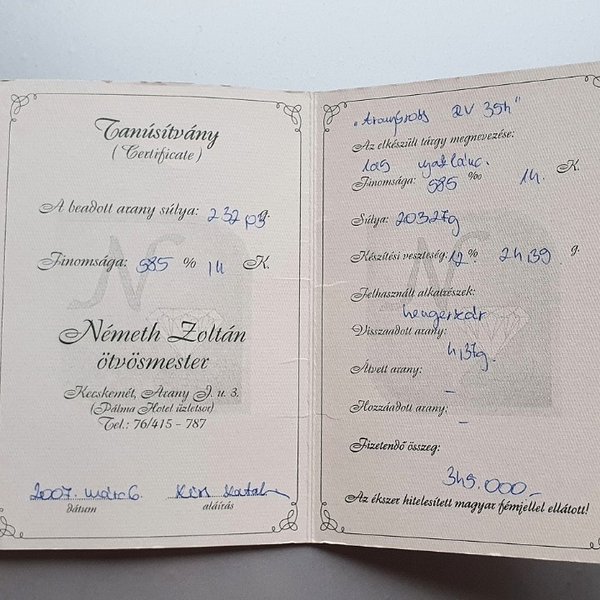 Tanúsítvány
(Certificate)
A beadott arany súlya: 232,03 g.
Finomsága: 585 ‰ 14 K.
N
Németh Zoltán
ötvösmester
Kecskemét, Arany J. u. 3.
(Pálma Hotel üzletsor)
Tel.: 76/415 - 787
2007. márc 6.
dátum
aláírás
Az elkészült tárgy megnevezése:
1 db nyaklánc.
Finomsága: 585 ‰ 14. K.
Súlya: 203,27g
Készítési veszteség: 12 % 24,39 g.
Felhasznált alkatrészek:
hengerzár
Visszaadott arany:
4,37g.
Átvett arany: -
Hozzáadott arany: -
Fizetendő összeg:
349.000,-
Az ékszer hitelesített magyar fémjellel ellátott!